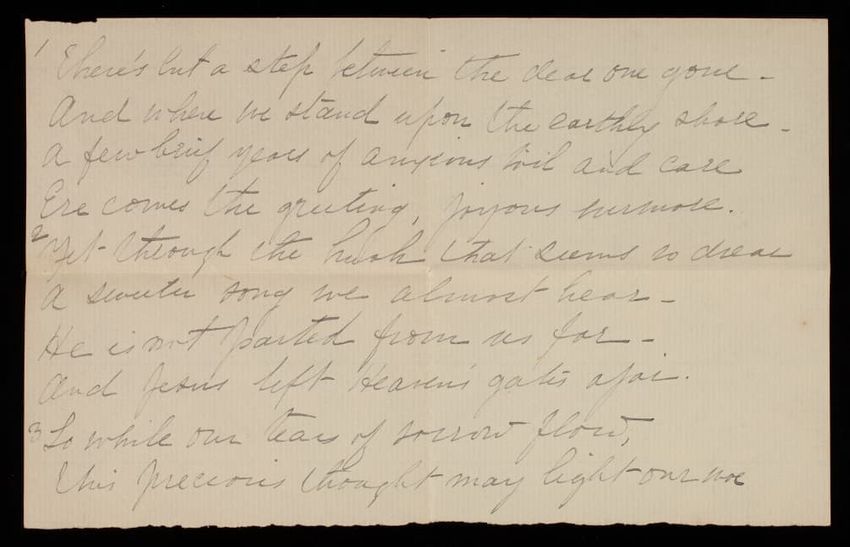 1 There's but a step between the dear one gone -
And where we stand upon the earthly shore -
A few brief years of anxious toil and care
Ere comes the greeting, joyous evermore.
2 Yet through the hush that seems so drear
A sweeter song we almost hear -
He is not parted from us far -
And Jesus left Heaven's gates ajar.
3 So while our tears of sorrow flow,
This precious thought may light our woe